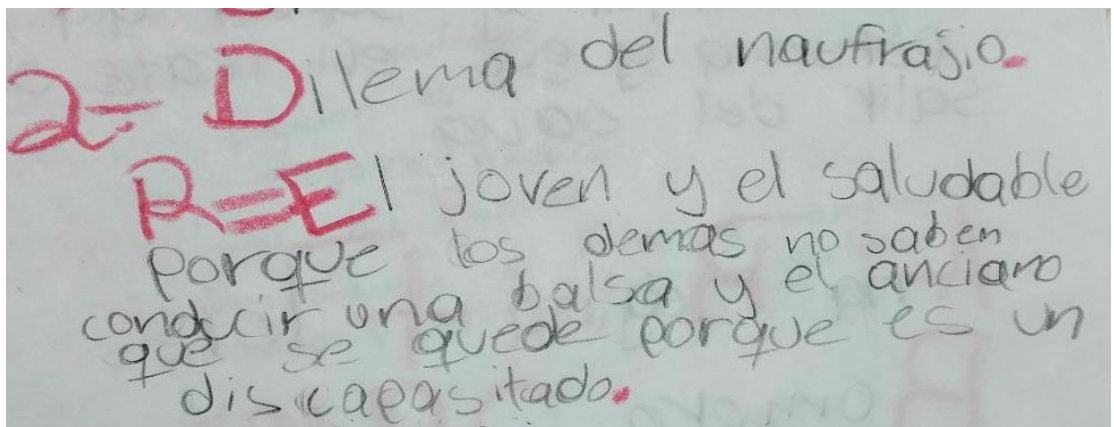 2- Dilema del naufrajio.
R=El joven y el saludable
porque los demas no saben
conducir una balsa y el anciano
que se quede porque es un
discapasitado.